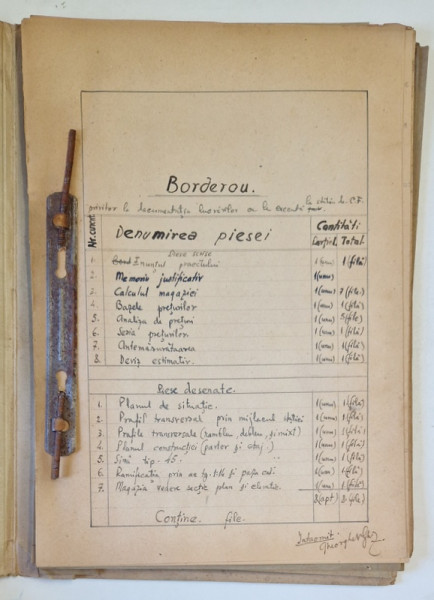 Borderou.
privitor la documentația lucrărilor ce la execută la stația C.F.
Nr. curent
Denumirea piesei
Cantități
Parțial. Total.
Piese scrise
1. Enunțul proectului 1 (una) 1 (filă)
2. Memoriu justificativ 1 (una)
3. Calculul magaziei 1 (una) 7 (file)
4. Bazele prețurilor 1 (una) 1 (filă)
5. Analiza de prețuri 1 (una) 5 (file)
6. Seria prețurilor 1 (una) 1 (filă)
7. Antemăsurătoarea 1 (una) 1 (filă)
8. Deviz estimativ. 1 (una) 1 (filă)
Piese desenate.
1. Planul de situație. 1 (una) 1 (filă)
2. Profil transversal prin mijlocul stației 1 (una) 1 (filă)
3. Profile transversale (rambleu, debleu, și mixt) 1 (una) 1 (filă)
4. Planul construcției (parter și etaj). 1 (una) 1 (filă)
5. Șină tip 45. 1 (una) 1 (filă)
6. Ramificația prin 1 (una) 1 (filă)
7. Magazia vedere secție plan și elevație 1 (una) 1 (filă)
8 (opt) file.
Conține file.
Întocmit